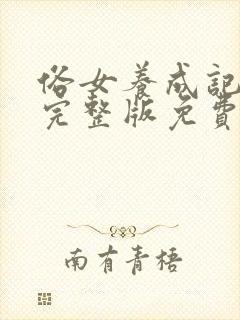 俗女养成記
完整版免費
南有青梧